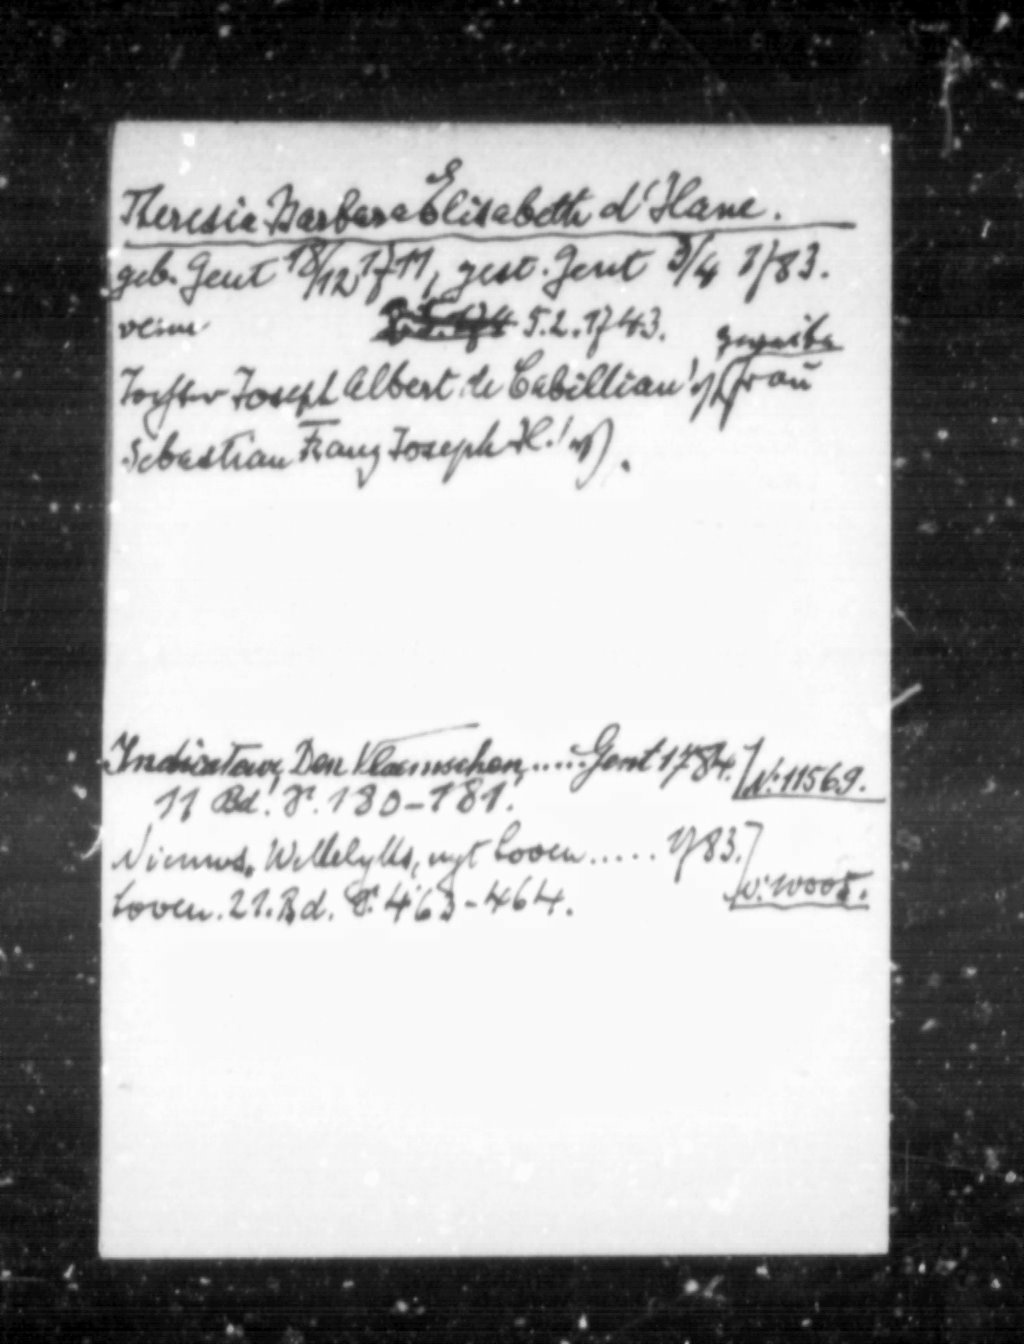 Theresia Barbara Elisabeth d'Hane.
geb. Gent 18/12 1711, gest. Gent 3/4 1783.
5.2.1743.
Tochter Joseph Albert de Cabillian's, Frau
Sebastian Franz Joseph H.'s.
Indicateur, Den Vlaemschen, ..... Gent 1784. N: 11569.
11 Bd. S. 180-181.
Nieuws, Wekelyks, uyt Loven ..... 1783.
Loven. 21. Bd. S. 463-464. N: 10005.